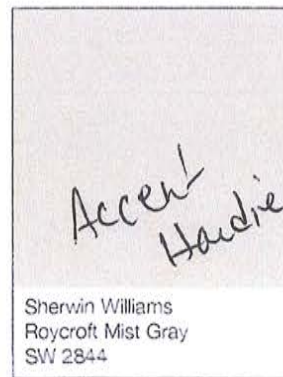 Accent
Hardie
Sherwin Williams
Roycroft Mist Gray
SW 2844